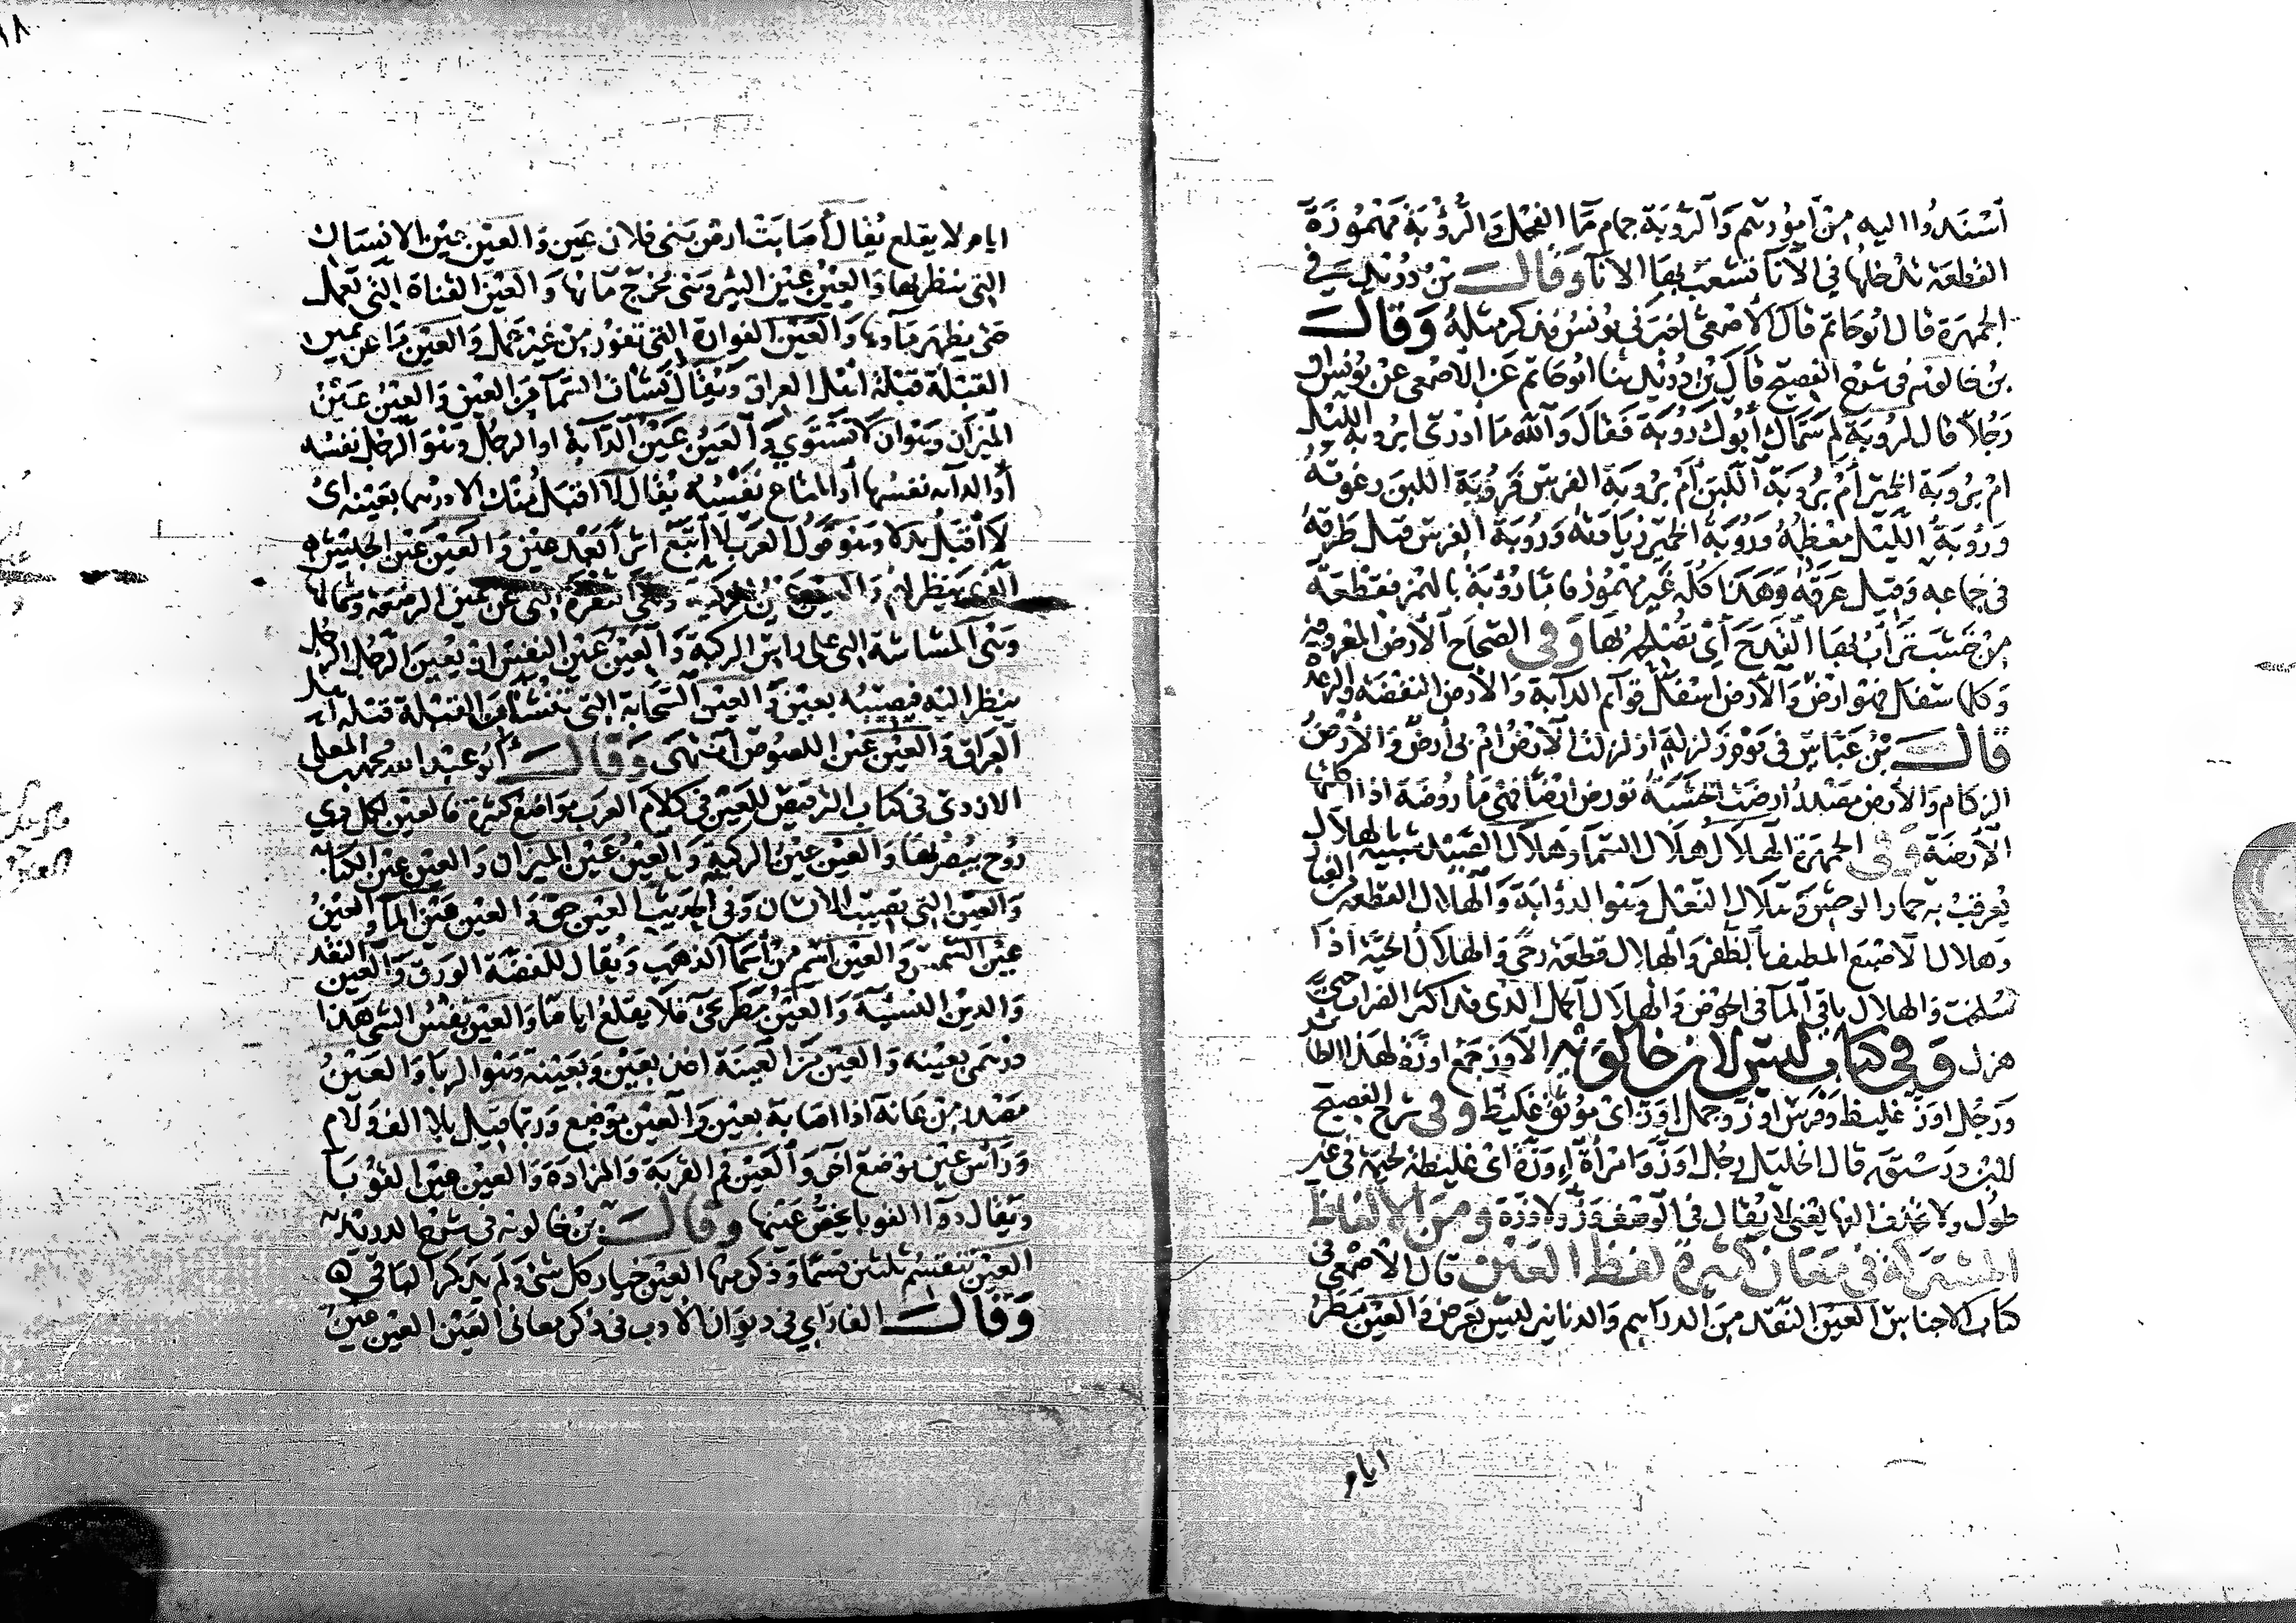 أسندوا اليه من أمورهم والروبة جمام ماء الفحل والرؤبة مهموزة
القطعة تدخلها في الانآ تشعب بها الانآ وقال بن دريد في
الجمهرة قال ابو حاتم قال الاصمعي اخبرني يونس فذكر مثله وقال
بن خالويه في شرح الفصيح قال بن دريد ثنا ابو حاتم عن الاصمعي عن يونس ان
رجلا قال لروبة لم سماك أبوك روبة فقال والله ما ادري ابروبة الليل
ام بروبة الخمير أم بروبة اللبن أم بروبة الفرس فروبة اللبن رغوته
وروبة الليل معظمه وروبة الخمير زيادته وروبة الفرس قيل طرقه
في جماعه وقيل عرقه وهذا كله غير مهموز فاما رؤبة بالهمز فقطعة
من خشب يرأب بها القدح أي تصلحه بها وفي الصحاح الارض المعروفة
وكلما سفل فهو ارض والارض اسفل قوائم الدابة والارض النفضة والرعدة
قال بن عباس في يوم زلزلة ازلزلت الارض ام بي أرض والارض
الزكام والارض مصدر ارضت الخشبة تورض ارضا فهي ماروضة اذا اكلتها
الارضة وفي الجمهرة الهلال هلال السماء وهلال الصيد شبيه بالهلال
يعرقب به حمار الوحش وهلال النعل وهو الذؤابة والهلال القطعة من الغبار
وهلال الاصبع المطيف بالظفر والهلال قطعة رحى والهلال الحية اذا
سلخت والهلال باقي المآ في الحوض والهلال الجمل الذي قد اكثر الضراب حتى
هزل وفي كتاب ليس لابن خالويه الاوز جمع اوزة لهذا الطائر
ورجل اوز غليظ وفرس اوز وجمل اوز اى موثق غليظ وفي شرح الفصيح
لابن درستويه قال الخليل رجل اوز وامرأة اوزة اى غليظة لحيمة في غير
طول ولا تحذف الفها يعني لا يقال في الوصف وز ولا وزة ومن الالفاظ
المشتركة في معان كثيرة لفظ العين قال الاصمعي في
كتاب الاجناس العين النقد من الدراهم والدنانير ليس بعرض والعين مطر
ايام
ايام لا يقلع يقال أصابت ارض بني فلان عين والعين عين الانسان
التي ينظر بها والعين عين البئر وهي مخرج مائها والعين القناة التي تعمل
حتى يظهر ماؤها والعين الفوارة التي تفور من غير عمل والعين ما عن يمين
القبلة قبلة اهل العراق ويقال نشأت السماء من العين والعين عين
الميزان وهو ان لا تستوي والعين عين الدابة او الرجل وهو الرجل نفسه
أو الدابة نفسها أو المتاع نفسه يقال لا اقبل منك الا درهما بعينه اى
لا أقبل بدلا وهو قول العرب لا أتبع اثرا بعد عين والعين عين الجيش
الذي ينظر لهم والعين عين الركبة وهي النقرة التي عن يمين الرضفة وشمالها
وهي المشاشة التي على راس الركبة والعين عين النفس ان يعين الرجل الرجل
ينظر اليه فيصيبه بعين والعين السحابة التي تنشأ من القبلة قبلة اهل
العراق والعين عين اللصوص انتهى وقال أبو عبد الله محمد بن المعلى
الازدى في كتاب الترقيص للعين في كلام العرب مواضع كثيرة فالعين لكل ذي
روح يبصر بها والعين عين الركبة والعين عين الميزان والعين عين الكتاب
والعين التي تصيب الانسان وفي الحديث العين حق والعين عين المآ والعين
عين الشمس والعين اسم من أسمآ الذهب ويقال للفضة الورق والعين النقد
والدين النسيئة والعين مطر يجئ فلا يقلع اياما والعين نفس الشئ هذا
درهمى بعينه والعين من العينة اخذ بعين وبعينة وهو الربا والعين
مصدر من عانه اذا اصابه بعين والعين موضع وربما قيل بلا الف ولام
ورأس عين موضع آخر والعين فم القربة والمزادة والعين عين القوبا
ويقال دوا القوبا بخص عينها وقال بن خالويه في شرح الدريدية
العين تنقسم ثلثين قسما وذكر منها العين خيار كل شئ ولم يذكر الباقي ه
وقال الفارابي في ديوان الادب في ذكر معاني العين العين عين